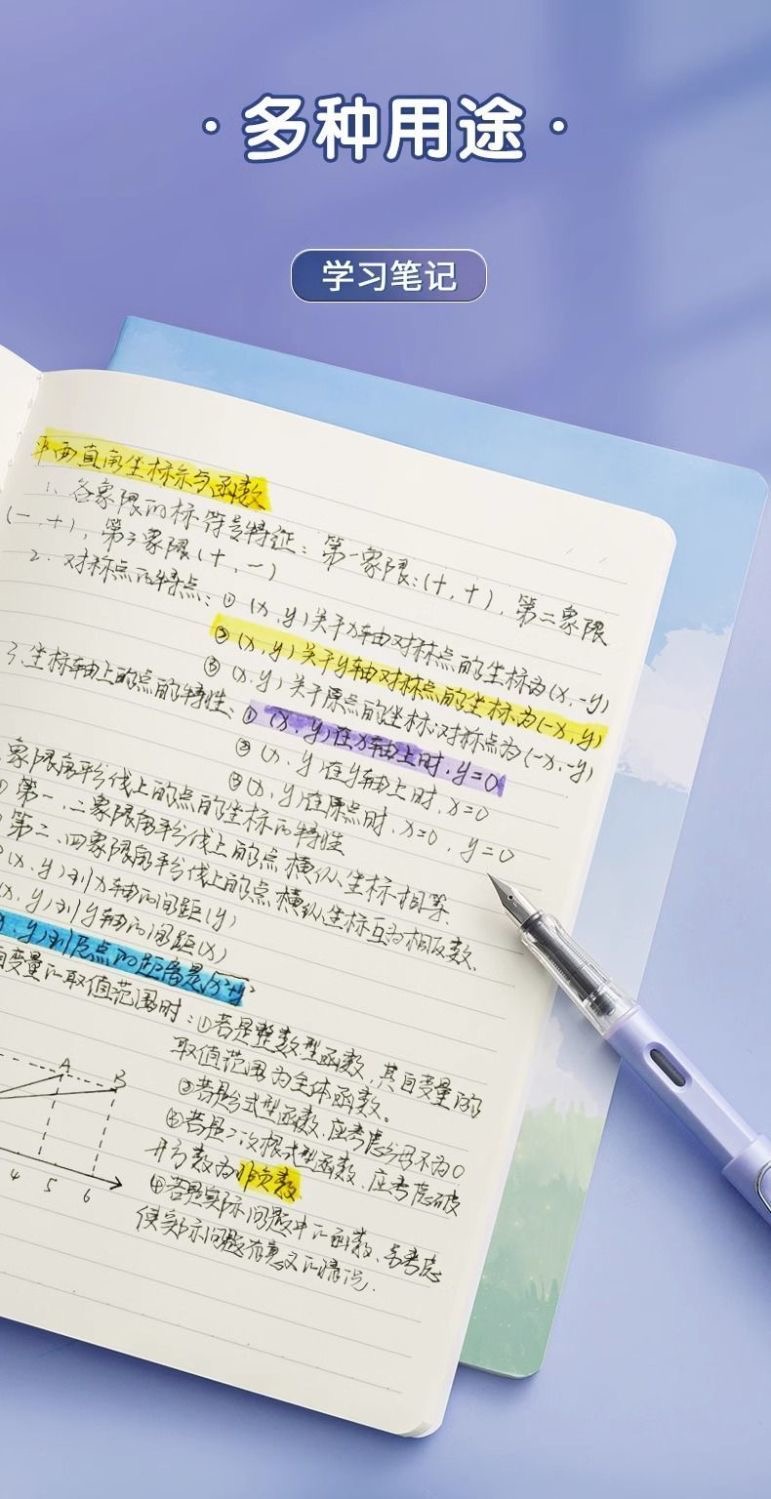 多种用途
学习笔记
平面直角坐标系与函数
1、各象限的标符号特征：第一象限：(+，+)，第二象限
(-，+)，第3象限(+，-)
2、对称点的特点：①(x，y)关于x轴对称点的坐标为(x,-y)
②(x,y)关于y轴对称点的坐标为(-x,y)
③(x.y)关于原点的坐标对称点为(-x.-y)
3.坐标轴上的点的特性、①(x，y)在x轴上时，y=0
②(x、y)在y轴上时、x=0
③(x、y)在原点时、x=0，y=0
象限角平分线上的点的坐标的特性
第一、二象限角平分线上的点横纵坐标相等.
第二、四象限角平分线上的点横纵坐标互为相反数.
(x、y)到x轴的间距(y)
(x、y)到y轴的间距(x)
y)到原点的距离是
自变量的取值范围时：①若是整数型函数，其自变量的
取值范围为全体函数.
②若是分式型函数、应考虑分母不为0
③若是二次根式型函数、应考虑被
开方数为非负数
④若是实际问题中的函数、考虑
使实际问题有意义的情况.
A
B
4 5 6